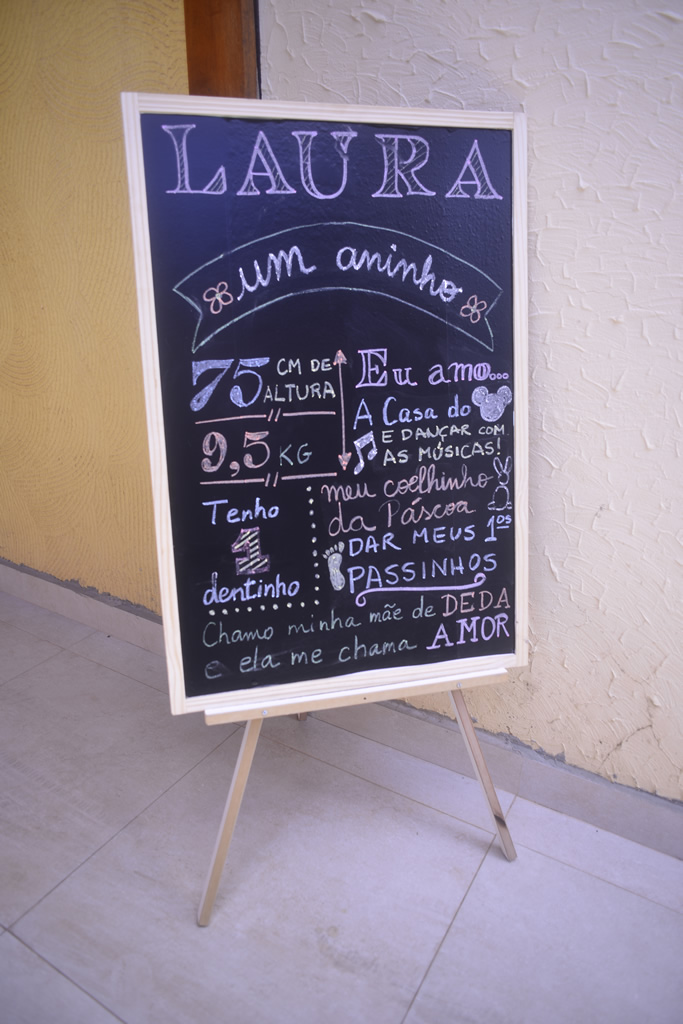 LAURA
um aninho
75 CM DE ALTURA
9,5 KG
Eu amo...
A Casa do
E DANÇAR COM
AS MÚSICAS!
meu coelhinho
da Páscoa
DAR MEUS 1ºS
PASSINHOS
Tenho
1
dentinho
Chamo minha mãe de DEDA
e ela me chama AMOR